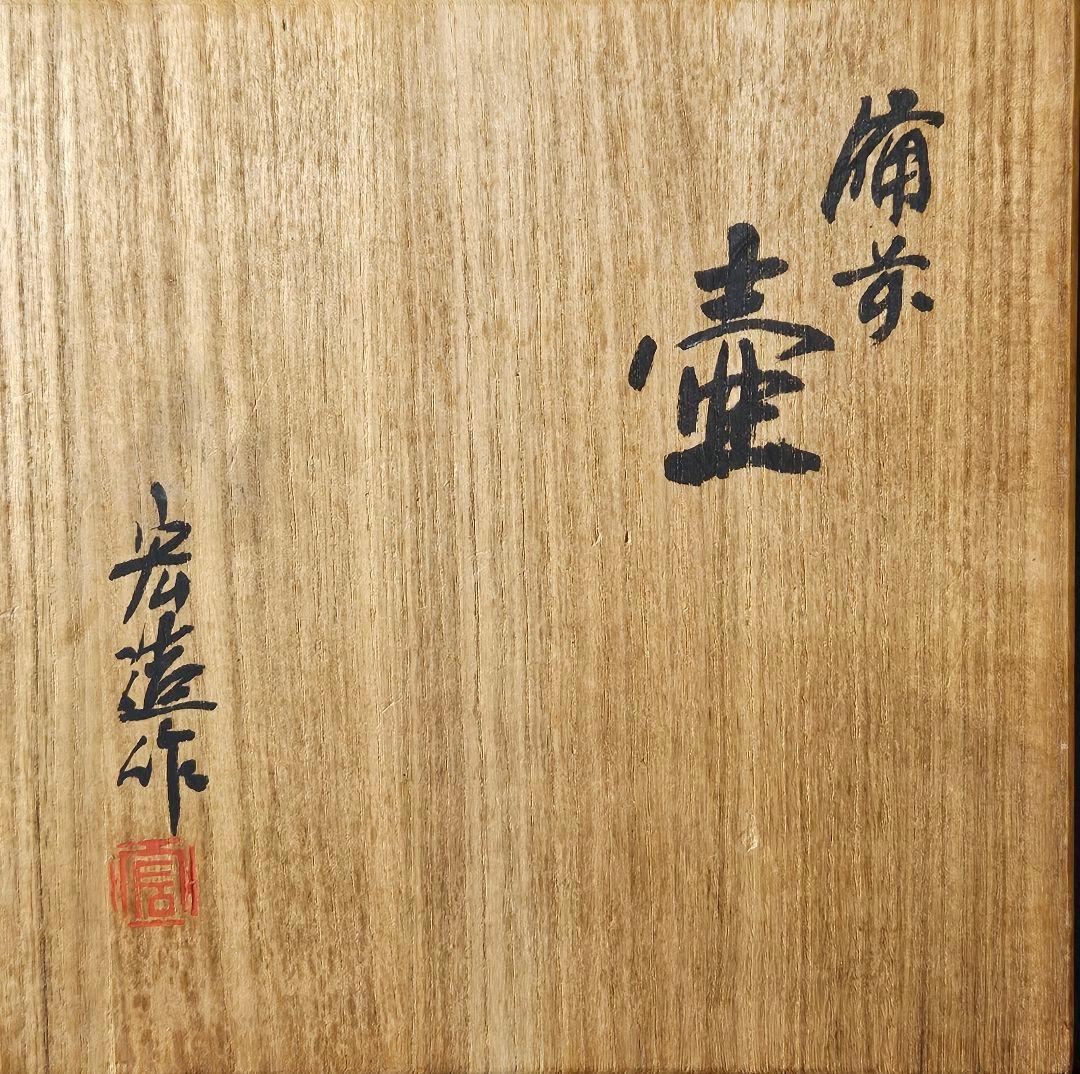 備前
壷
宏造作